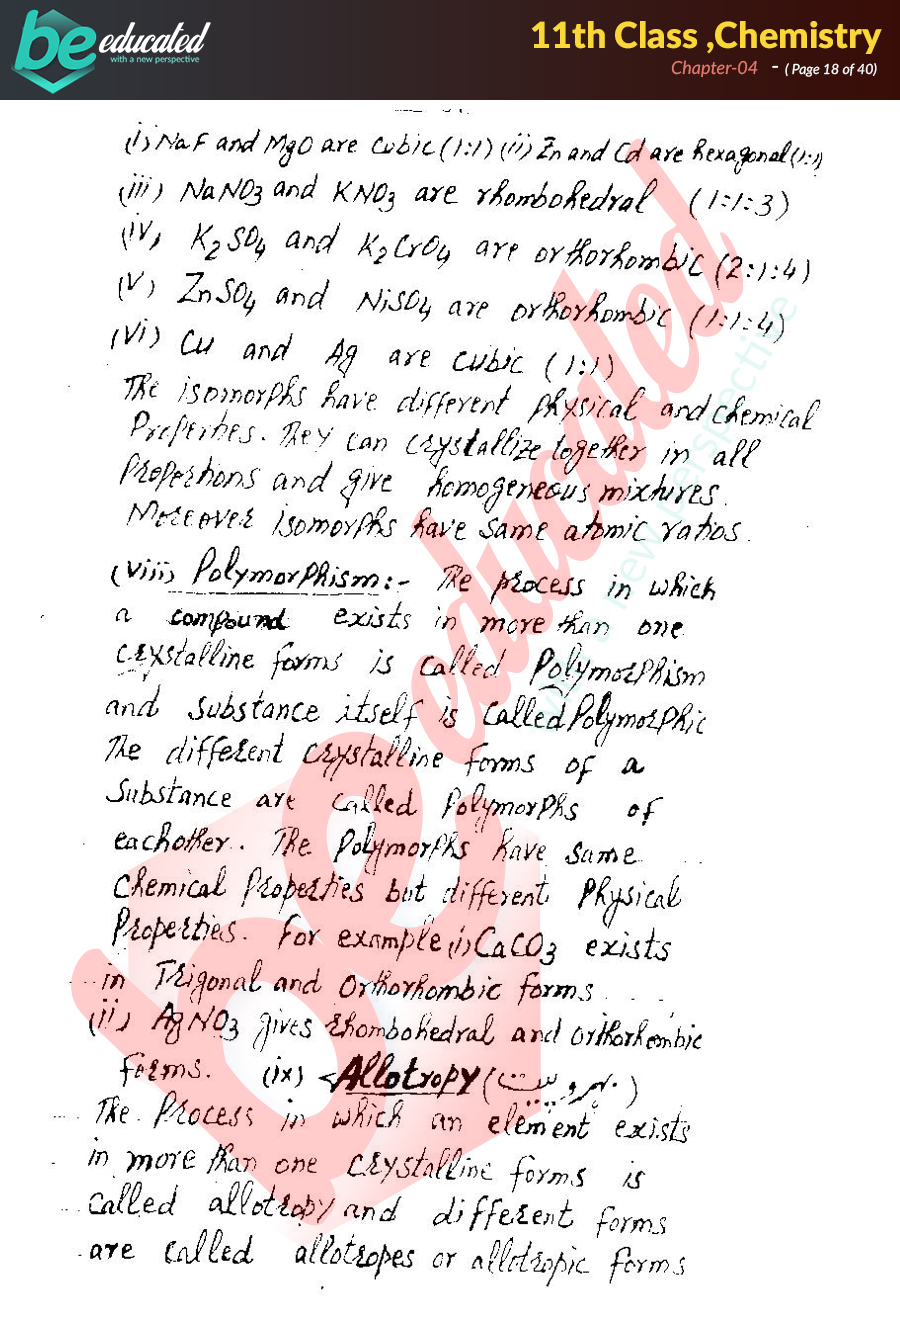 be educated
with a new perspective
11th Class ,Chemistry
Chapter-04 - ( Page 18 of 40)
(i) NaF and MgO are cubic (1:1) (ii) Zn and Cd are hexagonal (1:1)
(iii) NaNO3 and KNO3 are rhombohedral (1:1:3)
(iv) K2SO4 and K2CrO4 are orthorhombic (2:1:4)
(v) ZnSO4 and NiSO4 are orthorhombic (1:1:4)
(vi) Cu and Ag are cubic (1:1)
The isomorphs have different physical and chemical
Properties. They can crystallize together in all
Proportions and give homogeneous mixtures.
Moreover isomorphs have same atomic ratios.
(viii) Polymorphism:- The process in which
a compound exists in more than one
crystalline forms is called Polymorphism
and substance itself is called Polymorphic
The different crystalline forms of a
substance are called Polymorphs of
eachother. The Polymorphs have same
Chemical Properties but different Physical
Properties. For example (i) CaCO3 exists
in Trigonal and Orthorhombic forms
(ii) AgNO3 gives rhombohedral and orthorhombic
forms. (ix) Allotropy
The Process in which an element exists
in more than one crystalline forms is
called allotropy and different forms
are called allotropes or allotropic forms
be educated
with a new perspective